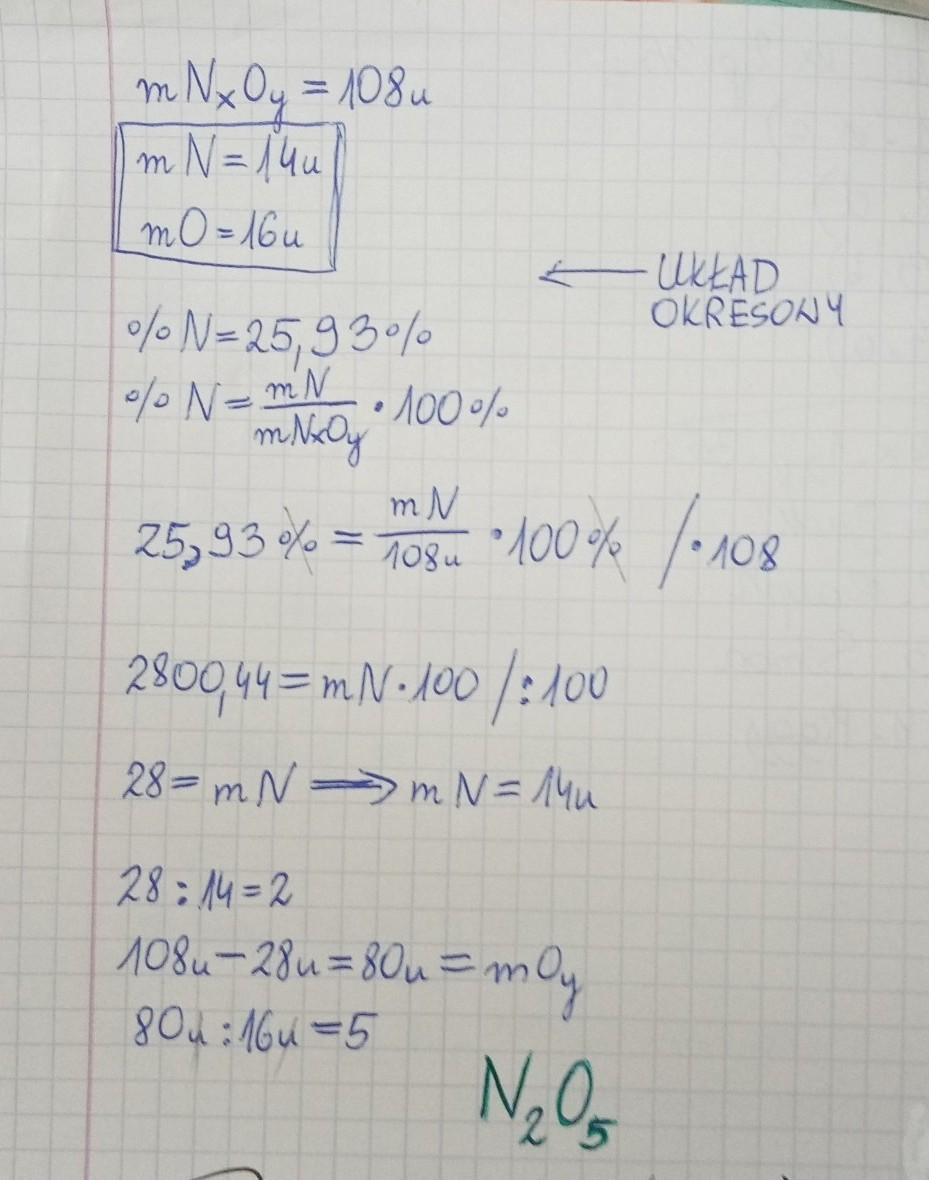 mNₓOᵧ = 108u
mN = 14u
mO = 16u
← UKŁAD
OKRESOWY
%N = 25,93%
%N = mN/mNₓOᵧ · 100%
25,93% = mN/108u · 100% / · 108
2800,44 = mN · 100 / : 100
28 = mN ⟹ mN = 14u
28 : 14 = 2
108u − 28u = 80u = mOᵧ
80u : 16u = 5
N₂O₅